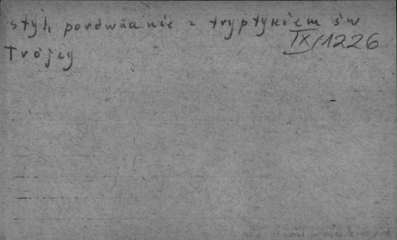 styl, porównanie z tryptykiem św
Trójcy
IX/1226